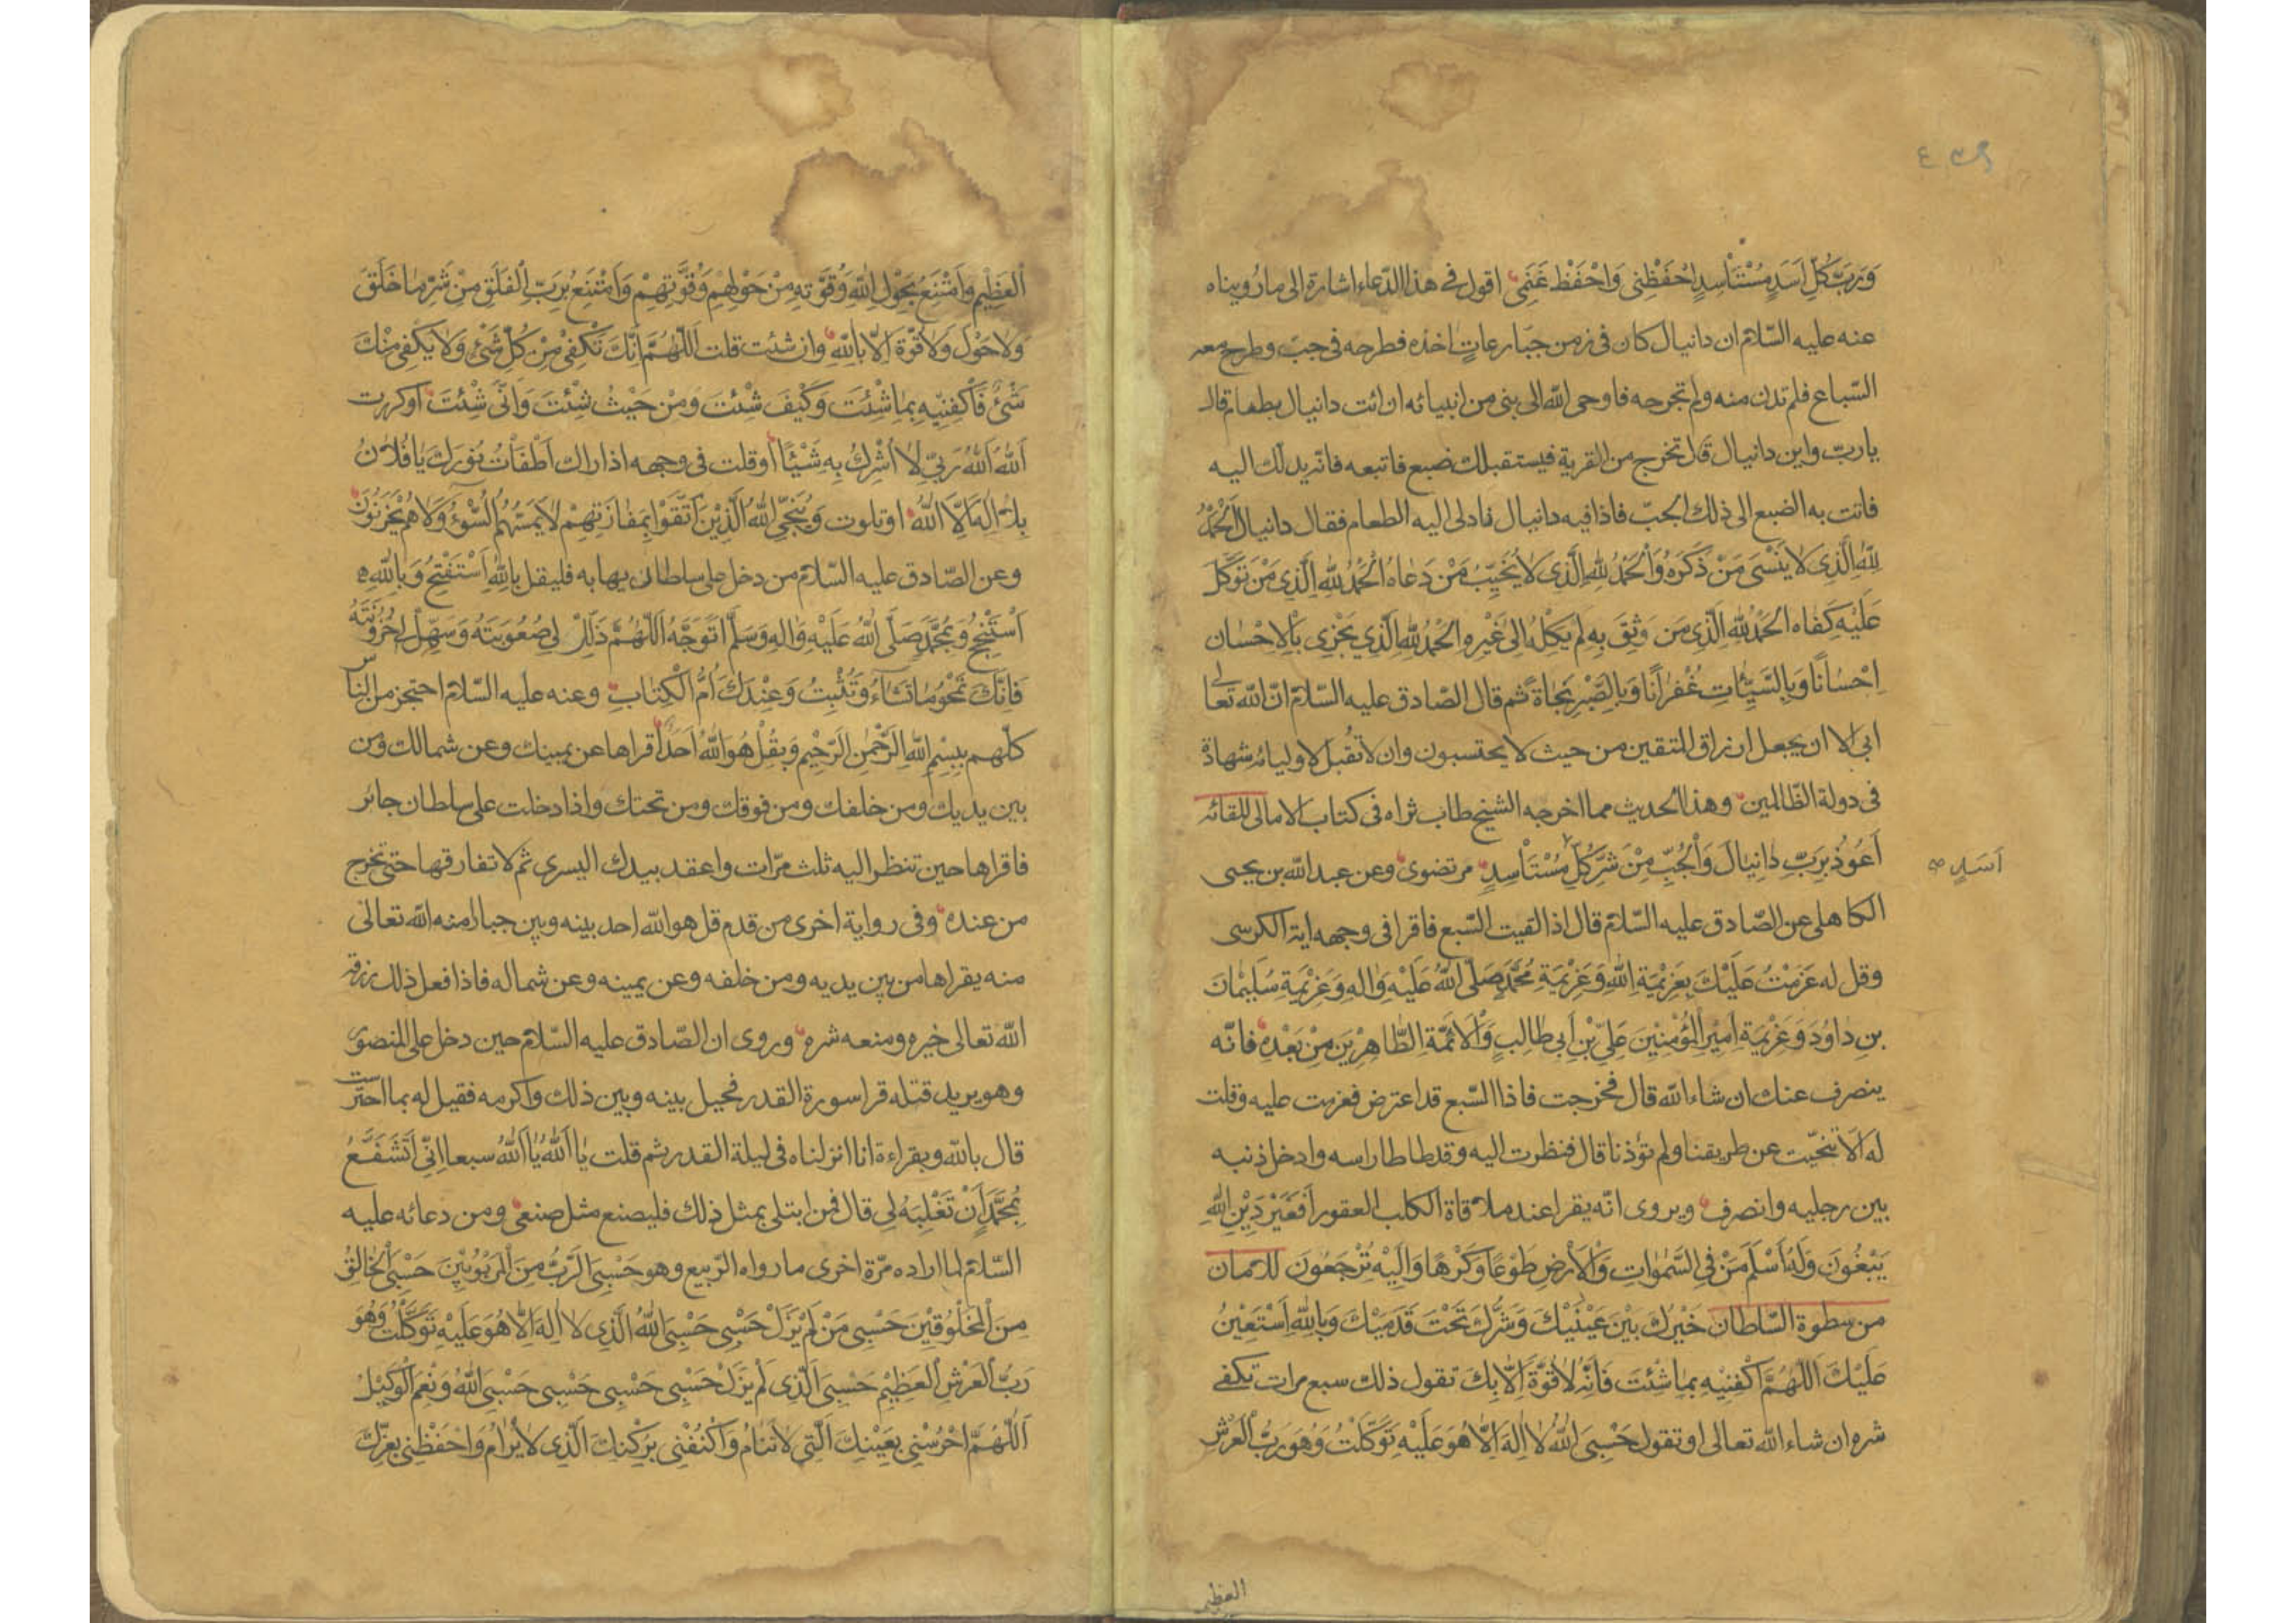 ٤٣٩
وَرَبَّ كُلِّ اَسَدٍ مُسْتَأْسِدٍ احْفَظْنِی وَاحْفَظْ غَنَمِی اقول فی هذا الدّعاء اشارة الی ما رُویناه
عنه علیه السّلام ان دانیال کان فی زمن جبّار عاتٍ اخذه فطرحه فی جبّ وطرح معه
السّباع فلم تدن منه ولم تجرحه فاوحی الله الی نبی من انبیائه ان ائت دانیال بطعام قال
یا ربّ واین دانیال قال تخرج من القریة فیستقبلک ضبع فاتبعه فانّه یدلّک الیه
فاتت به الضبع الی ذلک الجبّ فاذا فیه دانیال فادلی الیه الطعام فقال دانیال اَلْحَمْدُ
لِلّهِ الَّذِی لَا یَنْسَی مَنْ ذَکَرَهُ وَالْحَمْدُ لِلّهِ الَّذِی لَا یُخَیِّبُ مَنْ دَعَاهُ الْحَمْدُ لِلّهِ الَّذِی مَنْ تَوَکَّلَ
عَلَیْهِ کَفَاه الْحَمْدُ لِلّهِ الَّذِی مَن وَثِقَ بِهِ لَم یَکِلْهُ اِلیٰ غَیْرِه الْحَمْدُ لِلّهِ الَّذِی یَجْزِی بِالْاِحْسَان
اِحْسَانًا وَبِالسَّیِّئَاتِ غُفْرَانًا وَبِالصَّبْرِ نَجَاةً ثم قال الصّادق علیه السّلام انّ الله تعالی
ابی الا ان یجعل ارزاق المتقین من حیث لا یحتسبون وان لا تُقبل لاولیائه شهادة
فی دولة الظّالمین وهذا الحدیث مما اخرجه الشیخ طاب ثراه فی کتاب الامالی للقائه
اَعُوذُ بِرَبِّ دَانِیَالَ وَالْجُبِّ مِنْ شَرِّ کُلِّ مُسْتَأْسِدٍ مرتضوی وعن عبد الله بن یحیی
اَسَدٍ صح
الکاهلی عن الصّادق علیه السّلام قال اذا لقیت السّبع فاقرا فی وجهه ایة الکرسی
وقل له عَزَمْتُ عَلَیْکَ بِعَزِیْمَةِ اللهِ وَعَزِیْمَةِ مُحَمَّدٍ صَلَّی اللهُ عَلَیْهِ وَالِهِ وَعَزِیْمَةِ سُلَیْمٰانَ
بنِ دَاوُدَ وَعَزِیْمَةِ اَمِیْرِ الْمُؤْمِنِیْنَ عَلِیِّ بْنِ اَبِی طَالِبٍ وَالْاَئِمَّةِ الطَّاهِرِیْنَ مِنْ بَعْدِهِ فانّه
ینصرف عنک ان شاء الله قال فخرجت فاذا السّبع قد اعترض فعزمت علیه وقلت
له اَلَا تَنَحَّیْت عن طریقنا ولم تؤذنا قال فنظرت الیه وقد طاطا راسه وادخل ذنبه
بین رجلیه وانصرف ویروی انّه یقرا عند ملاقاة الکلب العقور اَفَغَیْرَ دِیْنِ اللهِ
یَبْغُونَ وَلَهُ اَسْلَمَ مَنْ فِی السَّمٰوَاتِ وَالْاَرْضِ طَوْعًا وَکَرْهًا وَاِلَیْهِ تُرْجَعُونَ للامان
من سطوة السّلطان خَیْرُکَ بَیْنَ عَیْنَیْکَ وَشَرُّکَ تَحْتَ قَدَمَیْکَ وَبِاللهِ اَسْتَعِیْنُ
عَلَیْکَ اَللّهُمَّ اکْفِنِیْهِ بِمَا شِئْتَ فَاِنَّهُ لَا قُوَّةَ اِلَّا بِکَ تقول ذلک سبع مرات تکفی
شره ان شاء الله تعالی او تقول حَسْبِیَ اللهُ لَا اِلٰهَ اِلَّا هُوَ عَلَیْهِ تَوَکَّلْتُ وَهُوَ رَبُّ الْعَرْشِ
العظیم
الْعَظِیْمِ وَاَمْتَنِعُ بِحَوْلِ اللهِ وَقُوَّتِهِ مِنْ حَوْلِهِمْ وَقُوَّتِهِمْ وَاَمْتَنِعُ بِرَبِّ الْفَلَقِ مِنْ شَرِّ مَا خَلَقَ
وَلَا حَوْلَ وَلَا قُوَّةَ اِلَّا بِاللهِ وان شئت قلت اَللّهُمَّ اِنَّکَ تَکْفِی مِنْ کُلِّ شَیْءٍ وَلَا یَکْفِی مِنْکَ
شَیْءٌ فَاکْفِنِیْهِ بِمَا شِئْتَ وَکَیْفَ شِئْتَ وَمِنْ حَیْثُ شِئْتَ وَاَنّٰی شِئْتَ او کررت
اَللهُ اَللهُ رَبِّی لَا اُشْرِکُ بِهِ شَیْئًا او قلت فی وجهه اذا راک اَطْفَأْتُ نُوْرَکَ یَا فُلَانُ
بِلَا اِلٰهَ اِلَّا اللهُ او تلوت وَیُنَجِّی اللهُ الَّذِیْنَ اتَّقَوْا بِمَفَازَتِهِمْ لَا یَمَسُّهُمُ السُّوْءُ وَلَا هُمْ یَحْزَنُوْنَ
وعن الصّادق علیه السّلام من دخل علی سلطان یهابه فلیقل بِاللهِ اَسْتَفْتِحُ وَبِاللهِ
اَسْتَنْجِحُ وَبِمُحَمَّدٍ صَلَّی اللهُ عَلَیْهِ وَالِهِ وَسَلَّمَ اَتَوَجَّهُ اَللّهُمَّ ذَلِّلْ لِی صُعُوْبَتَهُ وَسَهِّلْ لِی حُزُوْنَتَهُ
فَاِنَّکَ تَمْحُو مَا تَشَاءُ وَتُثْبِتُ وَعِنْدَکَ اُمُّ الْکِتَابِ وعنه علیه السّلام احتجز من النّاس
کلّهم بِبِسْمِ اللهِ الرَّحْمٰنِ الرَّحِیْمِ وَبِقُلْ هُوَ اللهُ اَحَدٌ اقراها عن یمینک وعن شمالک ومن
بین یدیک ومن خلفک ومن فوقک ومن تحتک واذا دخلت علی سلطان جائر
فاقراها حین تنظر الیه ثلث مرّات واعقد بیدک الیسری ثم لا تفارقها حتی تخرج
من عنده وفی روایة اخری من قدم قل هو الله احد بینه وبین جبار منه الله تعالی
منه یقراها من بین یدیه ومن خلفه وعن یمینه وعن شماله فاذا فعل ذلک رزقه
الله تعالی خیره ومنعه شره وروی ان الصّادق علیه السّلام حین دخل علی المنصور
وهو یرید قتله قرا سورة القدر فحیل بینه وبین ذلک واکرمه فقیل له بما احترست
قال بالله وبقراءة انا انزلناه فی لیلة القدر ثم قلت یَا اَللهُ یَا اَللهُ سبعا اِنِّی اَتَشَفَّعُ
بِمُحَمَّدٍ اَنْ تَغْلِبَهُ لِی قال فمن ابتلی بمثل ذلک فلیصنع مثل صنعی ومن دعائه علیه
السّلام لما اراده مرّة اخری ما رواه الرّبیع وهو حَسْبِیَ الرَّبُّ مِنَ الْمَرْبُوْبِیْنَ حَسْبِیَ الْخَالِقُ
مِنَ الْمَخْلُوْقِیْنَ حَسْبِی مَنْ لَمْ یَزَلْ حَسْبِی حَسْبِیَ اللهُ الَّذِی لَا اِلٰهَ اِلَّا هُوَ عَلَیْهِ تَوَکَّلْتُ وَهُوَ
رَبُّ الْعَرْشِ الْعَظِیْمِ حَسْبِیَ الَّذِی لَمْ یَزَلْ حَسْبِی حَسْبِی حَسْبِی حَسْبِیَ اللهُ وَنِعْمَ الْوَکِیْلُ
اَللّهُمَّ احْرُسْنِی بِعَیْنِکَ الَّتِی لَا تَنَامُ وَاکْنُفْنِی بِرُکْنِکَ الَّذِی لَا یُرَامُ وَاحْفَظْنِی بِعِزِّکَ